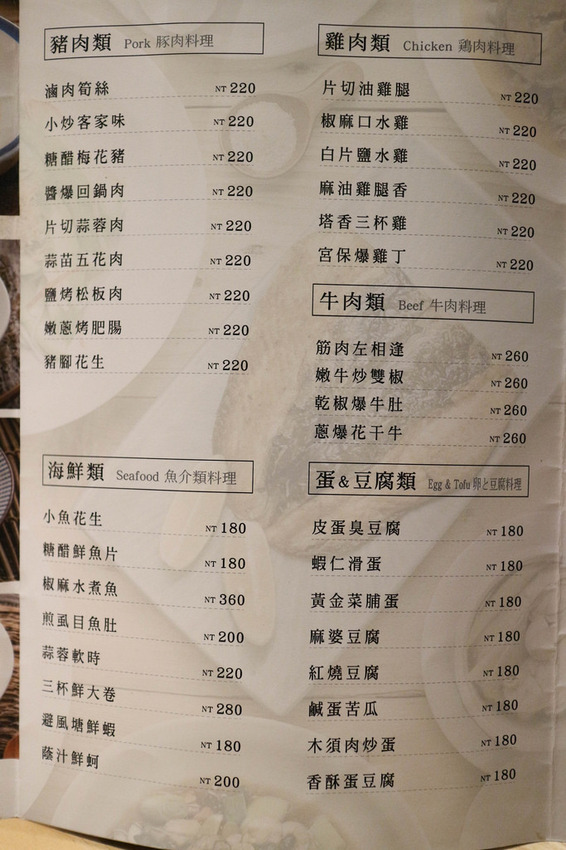 豬肉類 Pork 豚肉料理
滷肉筍絲 NT 220
小炒客家味 NT 220
糖醋梅花豬 NT 220
醬爆回鍋肉 NT 220
片切蒜蓉肉 NT 220
蒜苗五花肉 NT 220
鹽烤松板肉 NT 220
嫩蔥烤肥腸 NT 220
豬腳花生 NT 220
海鮮類 Seafood 魚介類料理
小魚花生 NT 180
糖醋鮮魚片 NT 180
椒麻水煮魚 NT 360
煎虱目魚肚 NT 200
蒜蓉軟時 NT 220
三杯鮮大卷 NT 280
避風塘鮮蝦 NT 180
蔭汁鮮蚵 NT 200
雞肉類 Chicken 鶏肉料理
片切油雞腿 NT 220
椒麻口水雞 NT 220
白片鹽水雞 NT 220
麻油雞腿香 NT 220
塔香三杯雞 NT 220
宮保爆雞丁 NT 220
牛肉類 Beef 牛肉料理
筋肉左相逢 NT 260
嫩牛炒雙椒 NT 260
乾椒爆牛肚 NT 260
蔥爆花干牛 NT 260
蛋&豆腐類 Egg & Tofu 卵と豆腐料理
皮蛋臭豆腐 NT 180
蝦仁滑蛋 NT 180
黃金菜脯蛋 NT 180
麻婆豆腐 NT 180
紅燒豆腐 NT 180
鹹蛋苦瓜 NT 180
木須肉炒蛋 NT 180
香酥蛋豆腐 NT 180